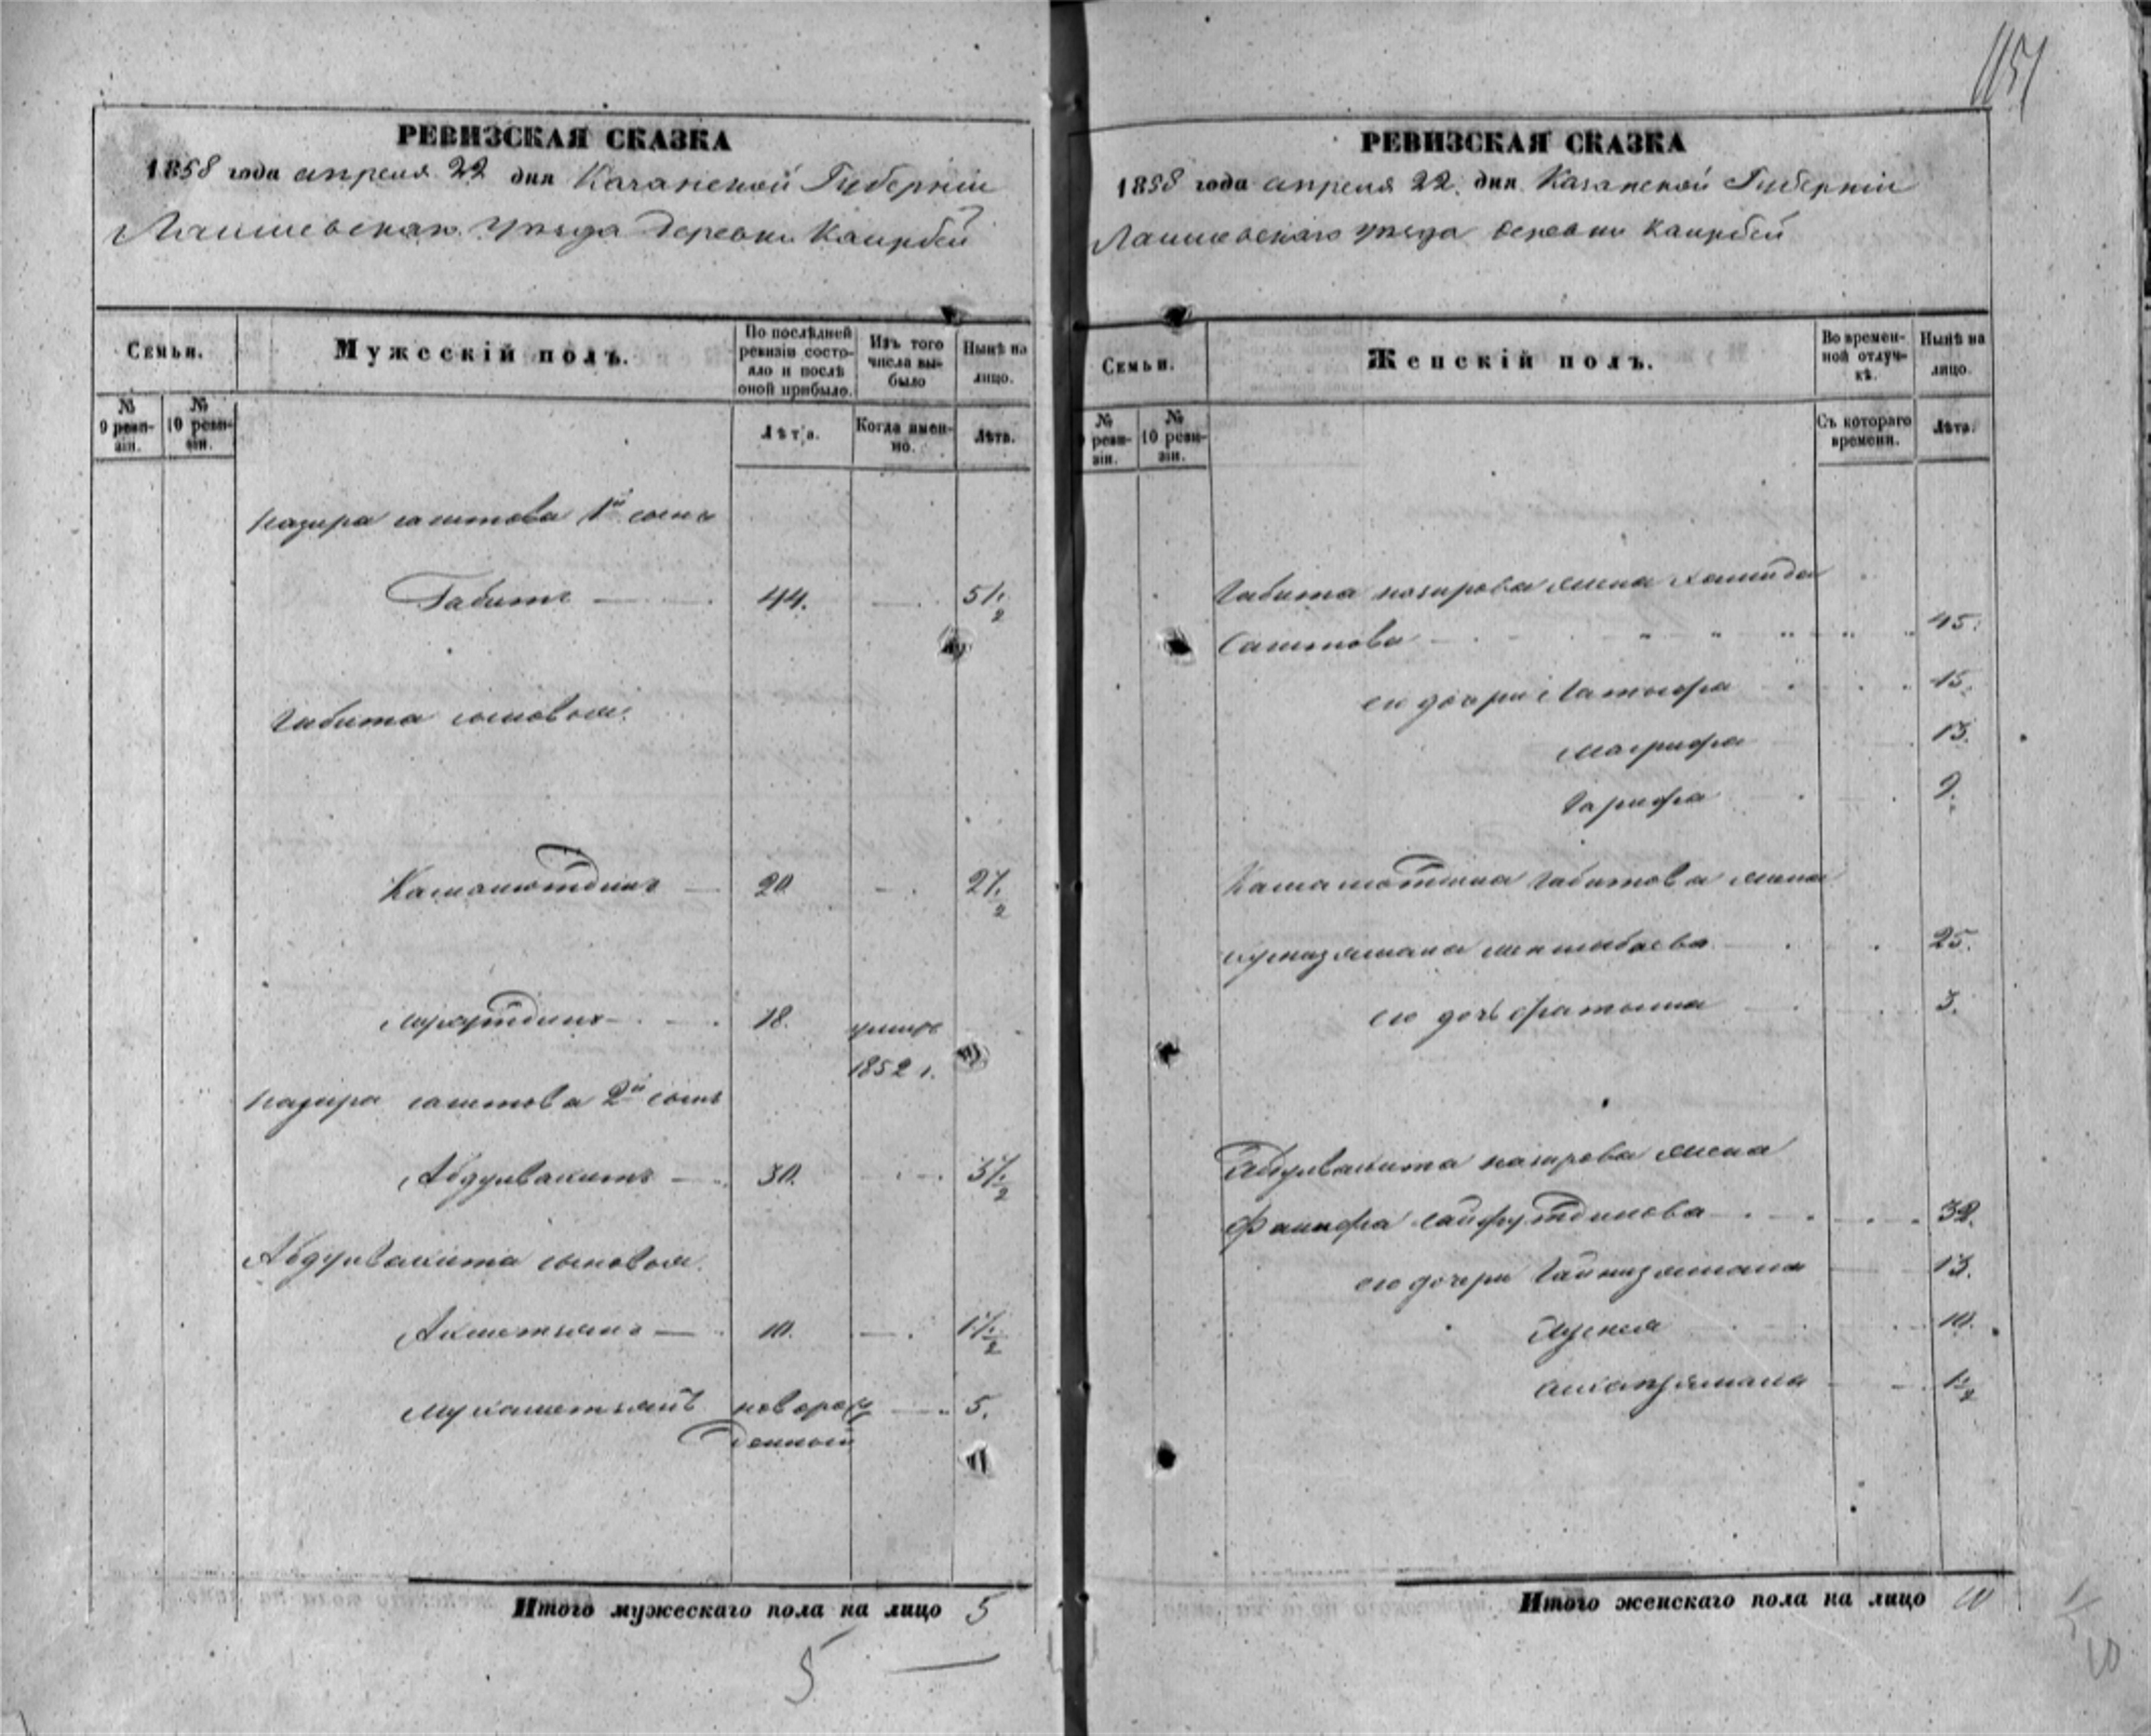 1151
РЕВИЗСКАЯ СКАЗКА
1858 года апреля 22 дня Казанской Губерніи
Лаишевскаго уѣзда деревни Каирбей
Семьи.
Мужескій полъ.
По послѣдней ревизіи состояло и послѣ оной прибыло.
Изъ того числа выбыло
Нынѣ на лицо.
№ 9 ревизіи.
№ 10 ревизіи.
Лѣта.
Когда именно.
Лѣта.
Назира саитова 1й сынъ
Габитъ 44. 51 1/2
Габита сыновья:
Камалютдинъ 20 27 1/2
18. умеръ
1852 г.
Назира саитова 2й сынъ
Абдулвахитъ 30. 37 1/2
Абдулвахита сыновья.
Ахметзянъ 10. 17 1/2
Мухаметзянъ новорож 5.
денный
Итого мужескаго пола на лицо 5
5
РЕВИЗСКАЯ СКАЗКА
1858 года апреля 22. дня Казанской Губерніи
Лаишевскаго уѣзда деревни Каирбей
Семьи.
Женскій полъ.
Во временной отлучкѣ.
Нынѣ на лицо.
№ ревизіи.
№ 10 ревизіи.
Съ котораго времени.
Лѣта.
Габита назирова жена Хамида
45.
его дочери Латыфа 15.
Магрифа 13.
Гарифа 9.
Камалютдина Габитова жена
25.
его дочь Фатыма 3.
Абдулвахита назирова жена
Сайфутдинова 32.
его дочери Гайнизямана 13.
10.
1 1/2
Итого женскаго пола на лицо 10
10